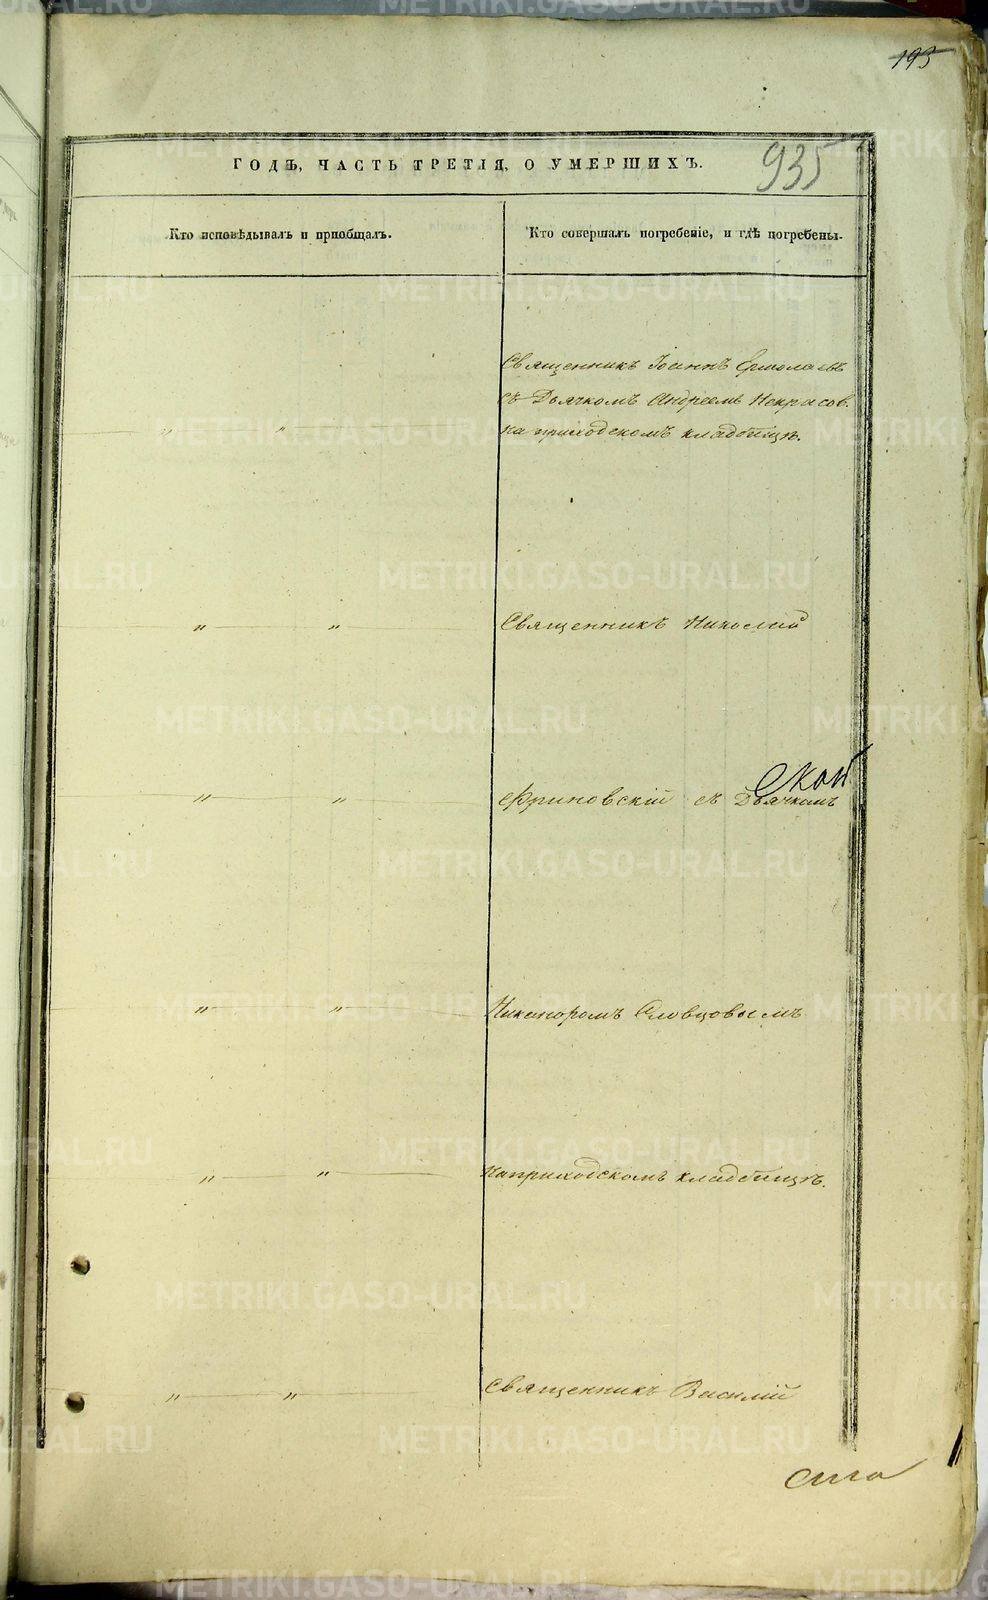 193
ГОДЪ, ЧАСТЬ ТРЕТІЯ, О УМЕРШИХЪ.
935
Кто исповѣдывалъ и пріобщалъ.
Кто совершалъ погребеніе, и гдѣ погребены.
Священникъ Іоаннъ Ермолаевъ
съ Дьячкомъ Андреемъ Некрасов.
на приходскомъ кладбищѣ.
" "
" "
Священникъ Николай
" "
Фриновскій съ Дьячкомъ
" "
Никаноромъ Словцовымъ
" "
На приходскомъ кладбищѣ.
" "
Священникъ Василій
METRIKI.GASO-URAL.RU